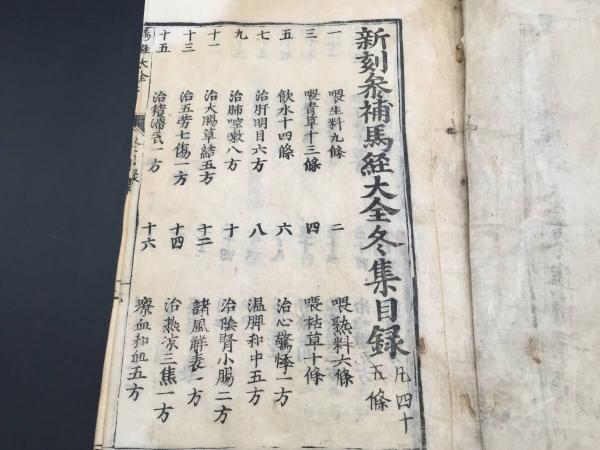 新刻參補馬經大全冬集目錄 凡四十五條
一 喂生料九條 二 喂熟料六條
三 喂青草十三條 四 喂枯草十條
五 飲水十四條 六 治心驚悸一方
七 治肝明目六方 八 温脾和中五方
九 治肺咳嗽八方 十 治陰腎小腸二方
十一 治大腸草結五方 十二 諸風解表一方
十三 治五勞七傷一方 十四 治熱涼三焦一方
十五 治積滯氣一方 十六 療血和血五方
馬經大全 目錄